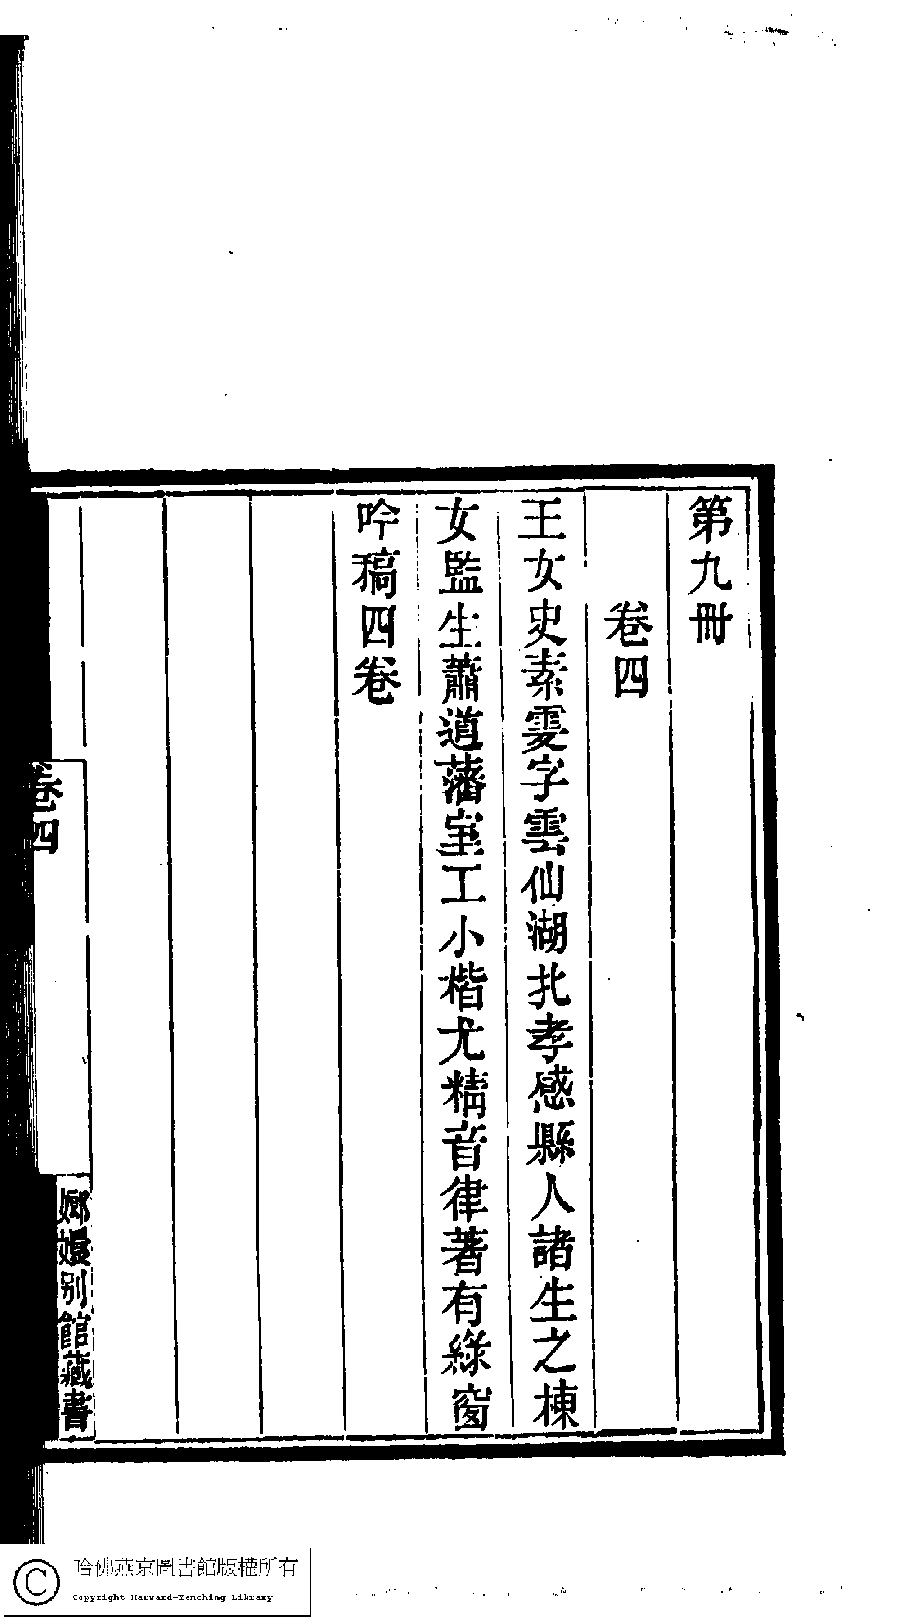 第九冊
卷四
王女史素雯字雲仙湖北孝感縣人諸生之棟
女監生蕭道藩室工小楷尤精音律著有綠窗
吟稿四卷
卷四
嫏嬛別館藏書
哈佛燕京圖書館版權所有
Copyright Harvard-Yenching Library